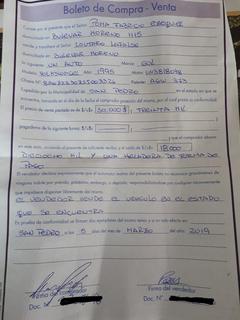 Boleto de Compra - Venta
Conste por el presente que el Señor TOMA FABRICIO EZEQUIEL
domiciliado en BULEVAR MORENO 1115
vende y transfiere al Señor LOUTARO
domiciliado en BULEVAR MORENO
UN AUTO Marca GOL
VOLKSWAGEN 1995 Motor
AGW 323
SAN PEDRO en el estado en que se
encuentra, tomando en el día de la fecha el comprador posesión del mismo, por cual presta su conformidad
El precio de venta pactado es de $/U$S: 30.000$ ( TREINTA MIL
)
pagaderos de la siguiente forma: $/U$S: (
) que el comprador abona
en este acto, sirviendo el presente de suficiente recibo, y el saldo de $/U$S: 18.000
DIECIOCHO MIL Y UNA HELADERA DE FORMA DE
PAGO
El vendedor declara expresamente que el automotor materia del presente boleto no reconoce gravámenes de
ninguna índole por prenda, préstamo, embargo, o depósito, responsabilizándose por cualquier reconocimiento
que impidiera disponer libremente del mismo.
EL VENDEDOR VENDE EL VEHICULO EN EL ESTADO
QUE SE ENCUENTRA
En prueba de conformidad se firman dos ejemplares del mismo tenor y a un solo efecto en
SAN PEDRO a los 5 días del mes de MARZO del año 2019
Firma del comprador
Firma del vendedor
Doc. Nº
Doc. Nº